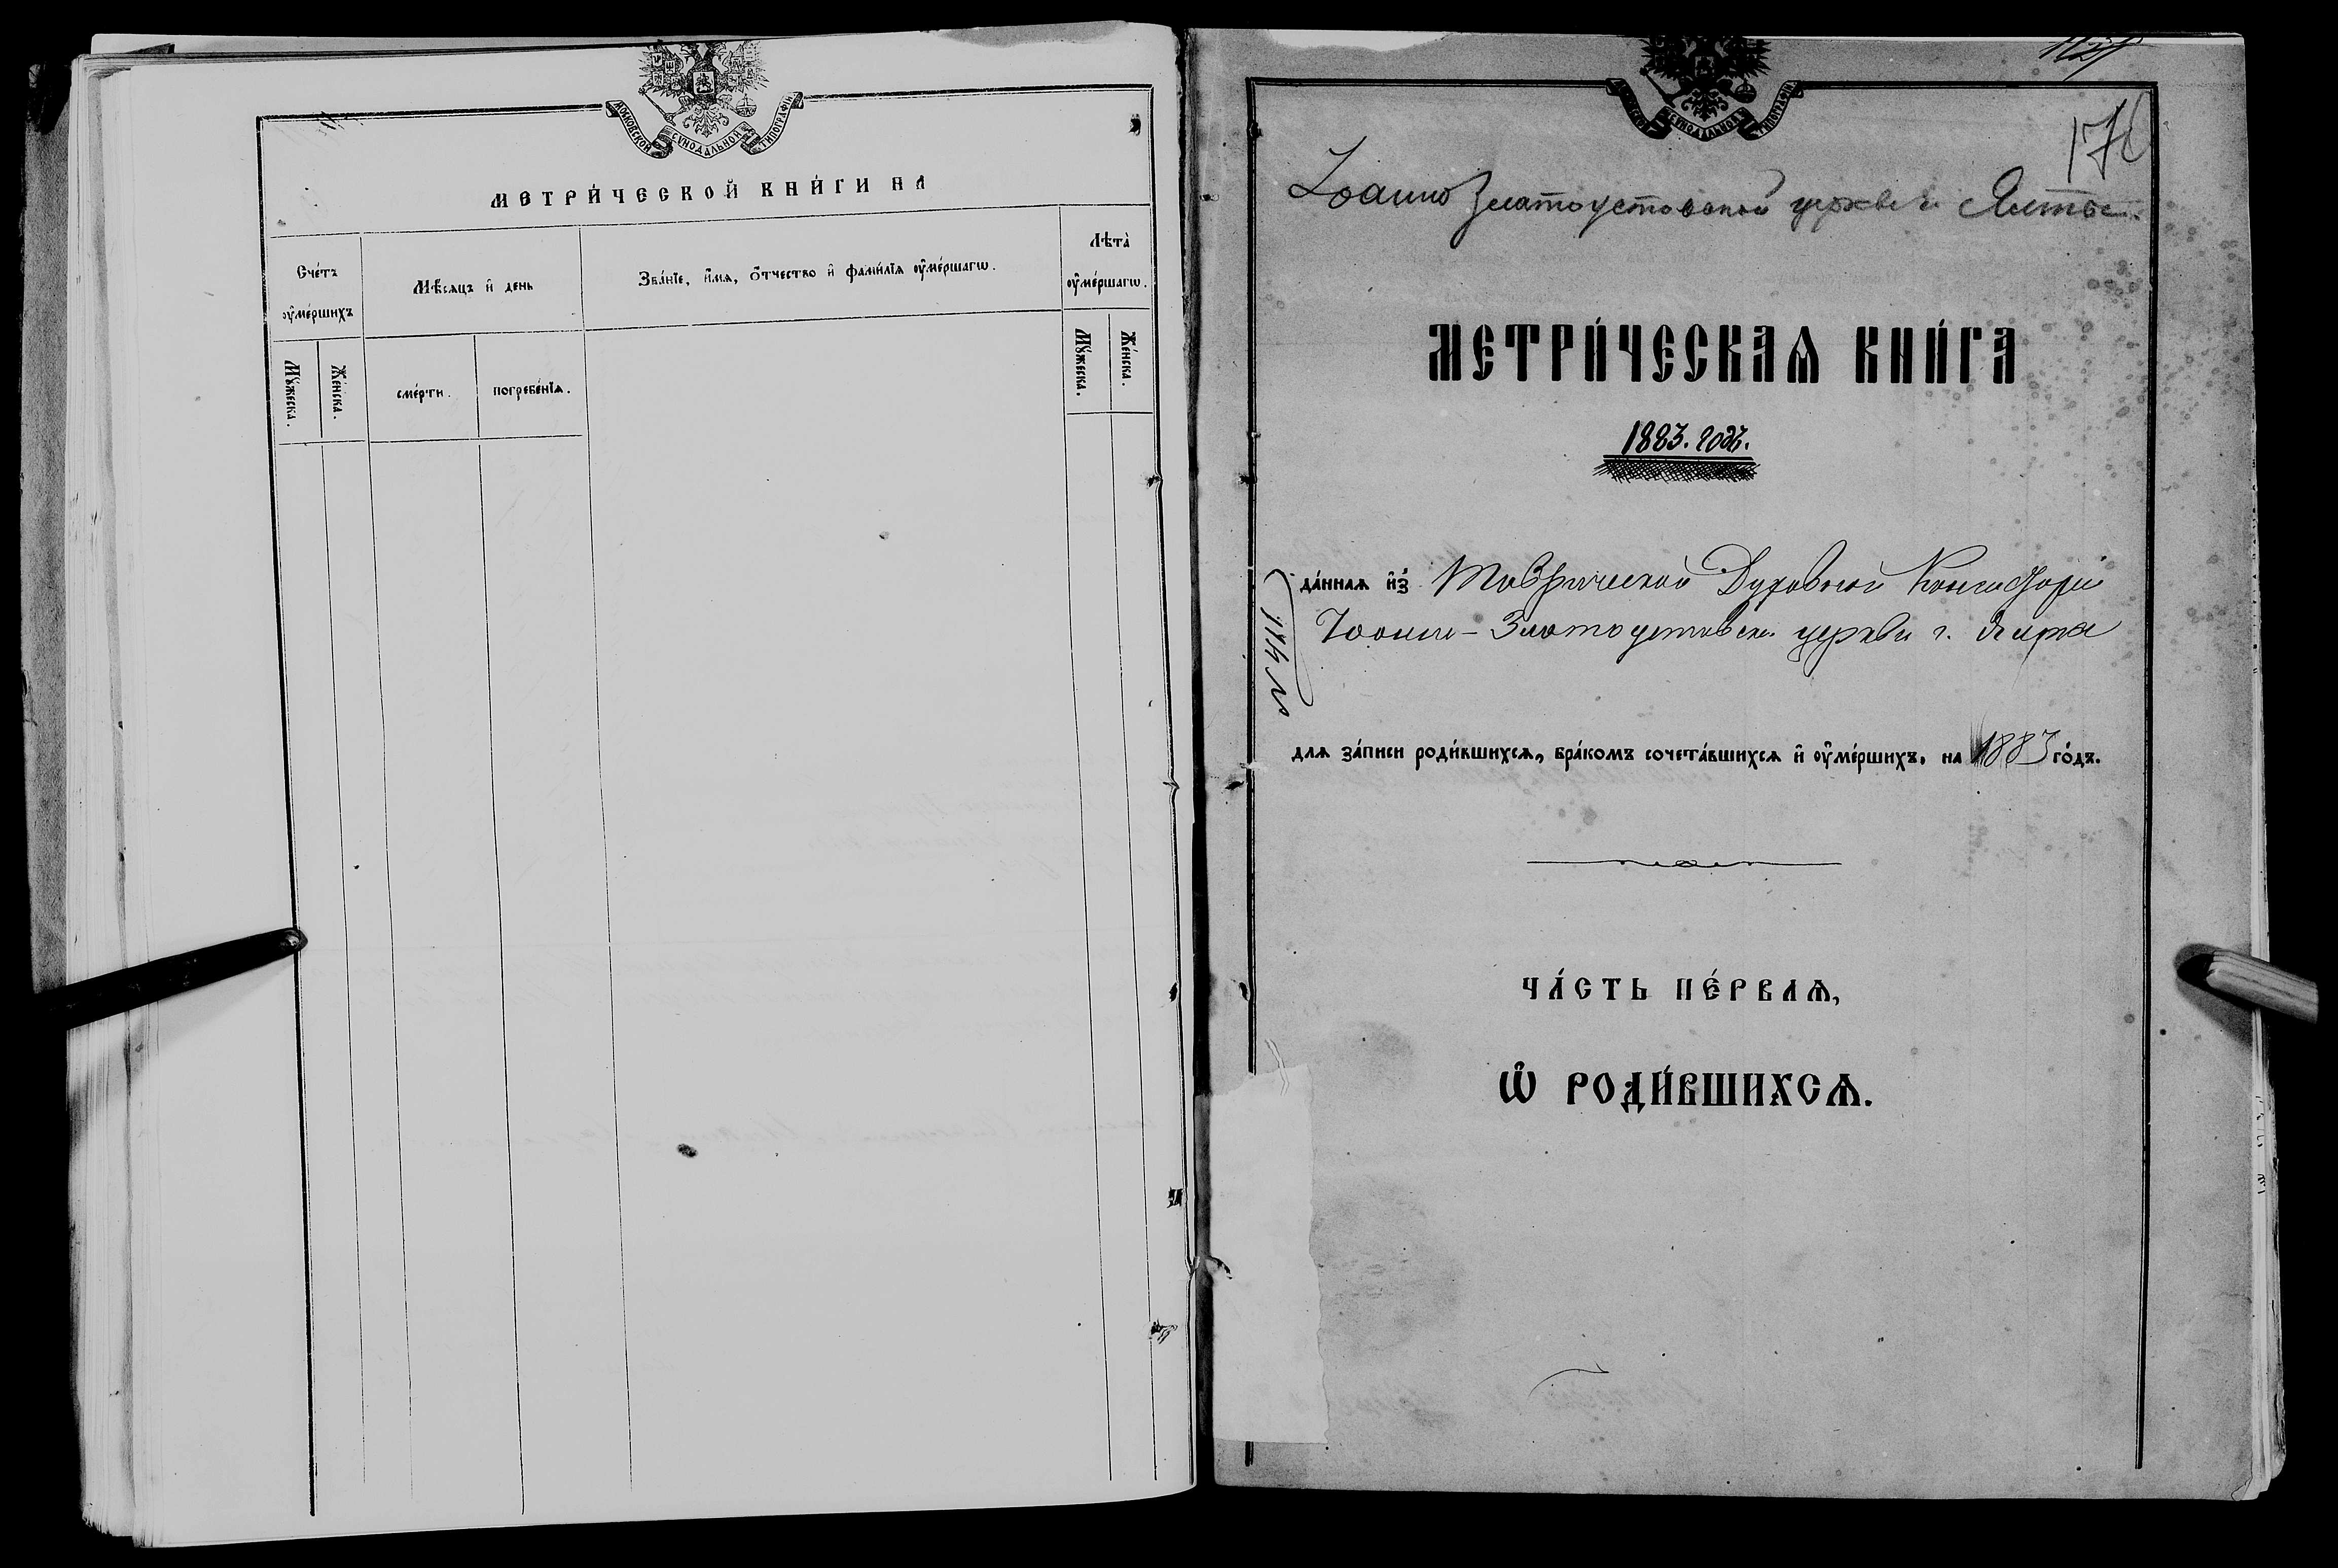 МОСКОВСКОЙ СѴНОДАЛЬНОЙ ТИПОГРАФІИ
МЕТРИ́ЧЕСКОЙ КНИ́ГИ НА
Сче́тъ ᲂу҆ме́ршихъ
Мѣ́сѧцъ и҆ день
Зва́нїе, и҆́мѧ, ѻ҆́тчество и҆ фами́лїѧ ᲂу҆ме́ршагѡ.
Лѣта̀ ᲂу҆ме́ршагѡ.
Мꙋ́жеска.
Же́нска.
сме́рти.
погребе́нїѧ.
Мꙋ́жеска.
Же́нска.
МОСКОВСКОЙ СѴНОДАЛЬНОЙ ТИПОГРАФІИ
Іоанно Златоустовской церкви Ялты.
МЕТРИ́ЧЕСКАѦ КНИ́ГА
1883. годъ.
да́ннаѧ и҆з̾ Таврической Духовной Консисторіи
Іоанно-Златоустовск. церкви г. Ялта
длѧ за́писи роди́вшихсѧ, бра́комъ сочета́вшихсѧ и҆ ᲂу҆ме́ршихъ, на 1883 го́дъ.
ЧА́СТЬ ПЕ́РВАѦ,
Ѽ РОДИ́ВШИХСѦ.